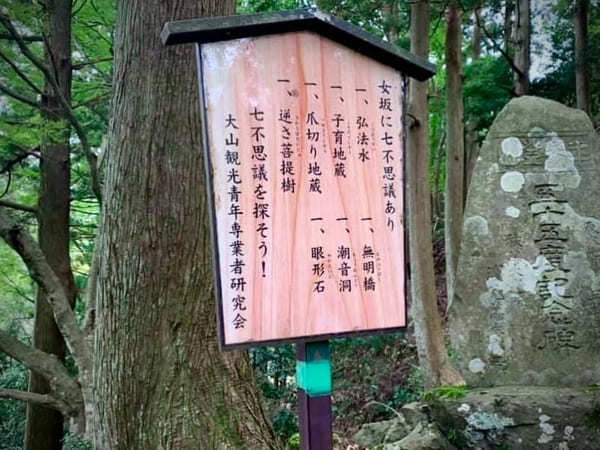 女坂に七不思議あり
一、弘法水
一、無明橋
一、子育地蔵
一、潮音洞
一、爪切り地蔵
一、眼形石
一、逆さ菩提樹
七不思議を探そう！
大山観光青年専業者研究会
三十五度記念碑